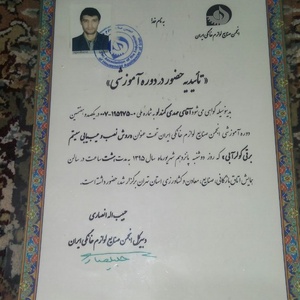 بنام خدا
انجمن صنایع لوازم خانگی ایران
« تائیدیه حضور در دوره آموزشی »
بدینوسیله گواهی می شود آقای مهدی به شماره ملی در یکصد و هفتمین
دوره آموزشی انجمن صنایع لوازم خانگی ایران تحت عنوان « روش نصب و عیب یابی سیستم
برقی کولر آبی » که روز دوشنبه پانزدهم شهریور ماه سال ۱۳۹۵ به مدت هشت ساعت در سالن
همایش اتاق بازرگانی، صنایع، معادن و کشاورزی استان تهران برگزار شد، حضور داشته است.
حبیب اله انصاری
دبیرکل انجمن صنایع لوازم خانگی ایران